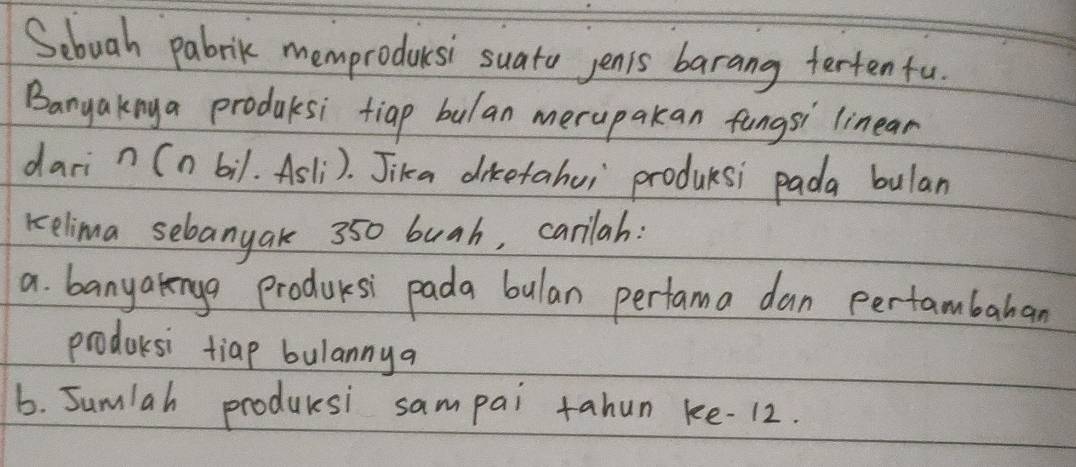 Sebuah pabrik memproduksi suatu jenis barang tertentu.
Banyaknya produksi tiap bulan merupakan fungsi linear
dari n (n bil. Asli). Jika diketahui produksi pada bulan
kelima sebanyak 350 buah, carilah:
a. banyaknya produksi pada bulan pertama dan pertambahan
produksi tiap bulannya
b. Jumlah produksi sampai tahun ke-12.